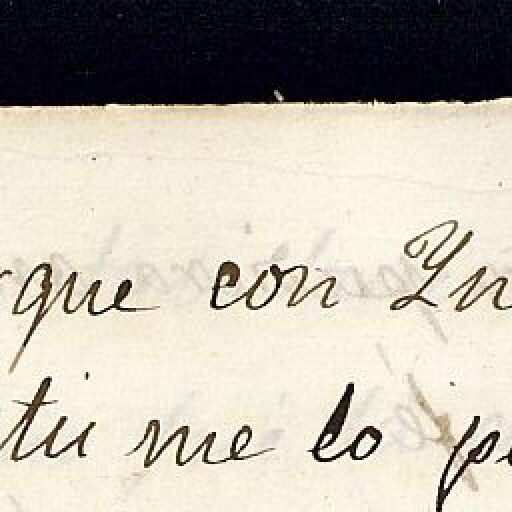 rque con Yn
tu me lo pi